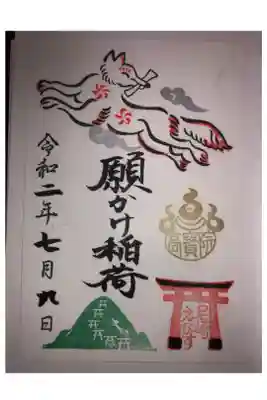 願かけ稲荷
令和二年七月九日
えびす